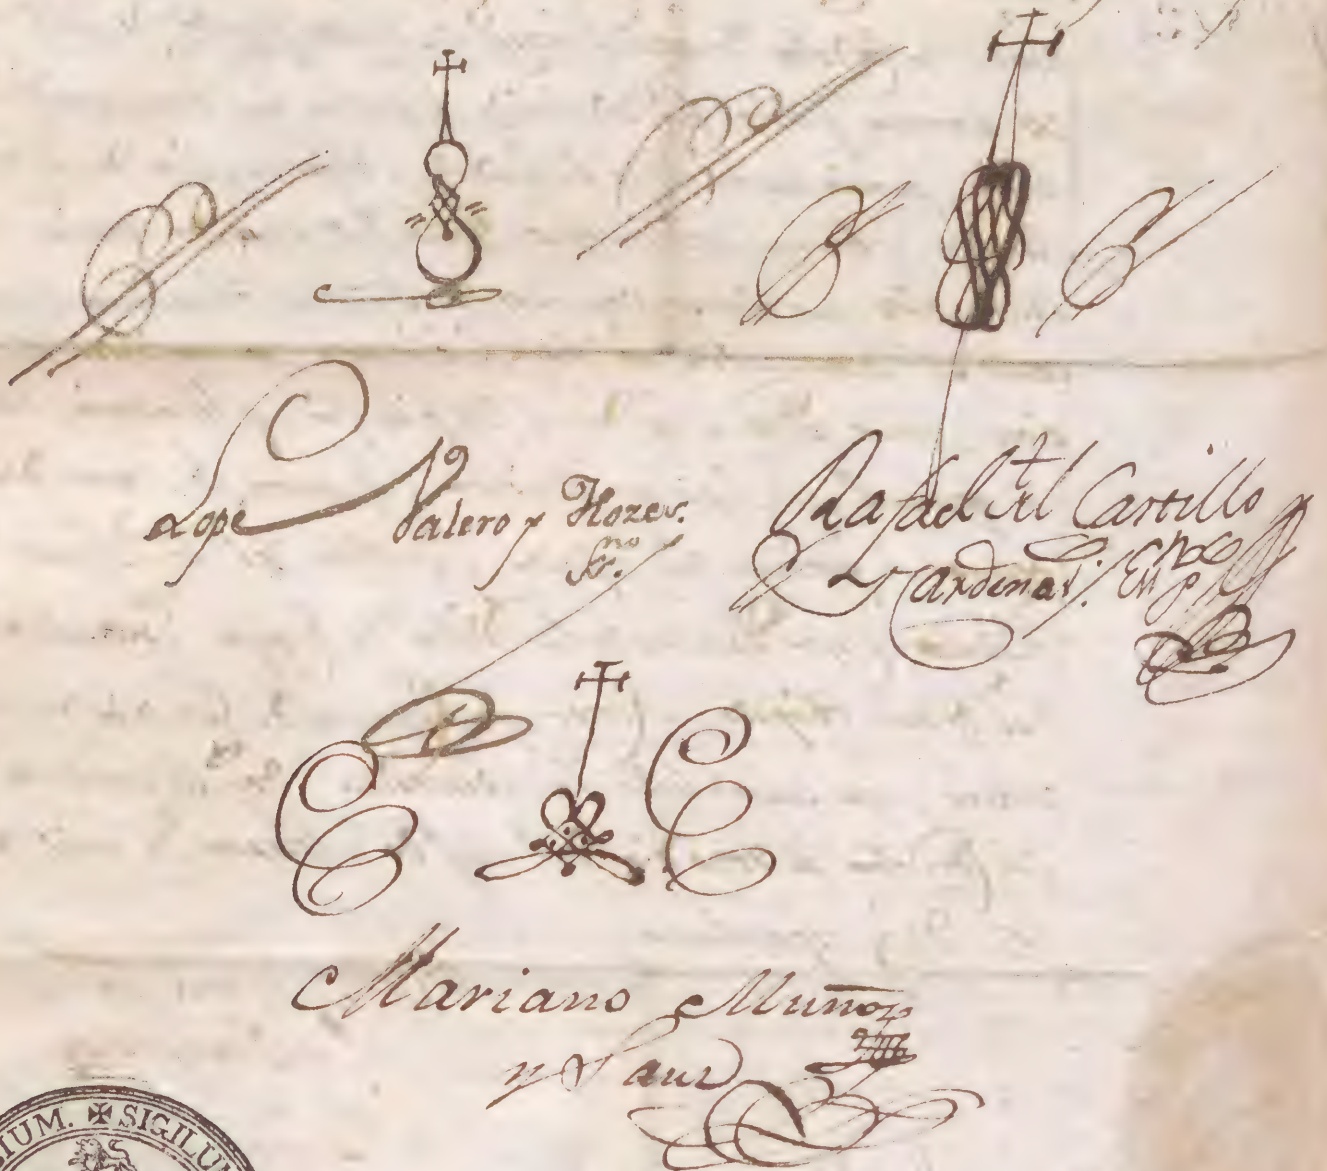 Lope Valero y Hozes.
Sr.no
Rafael del Castillo y
Cardenas.
Mariano Muñoz
y Sanz
IUM. ✠ SIGILLU